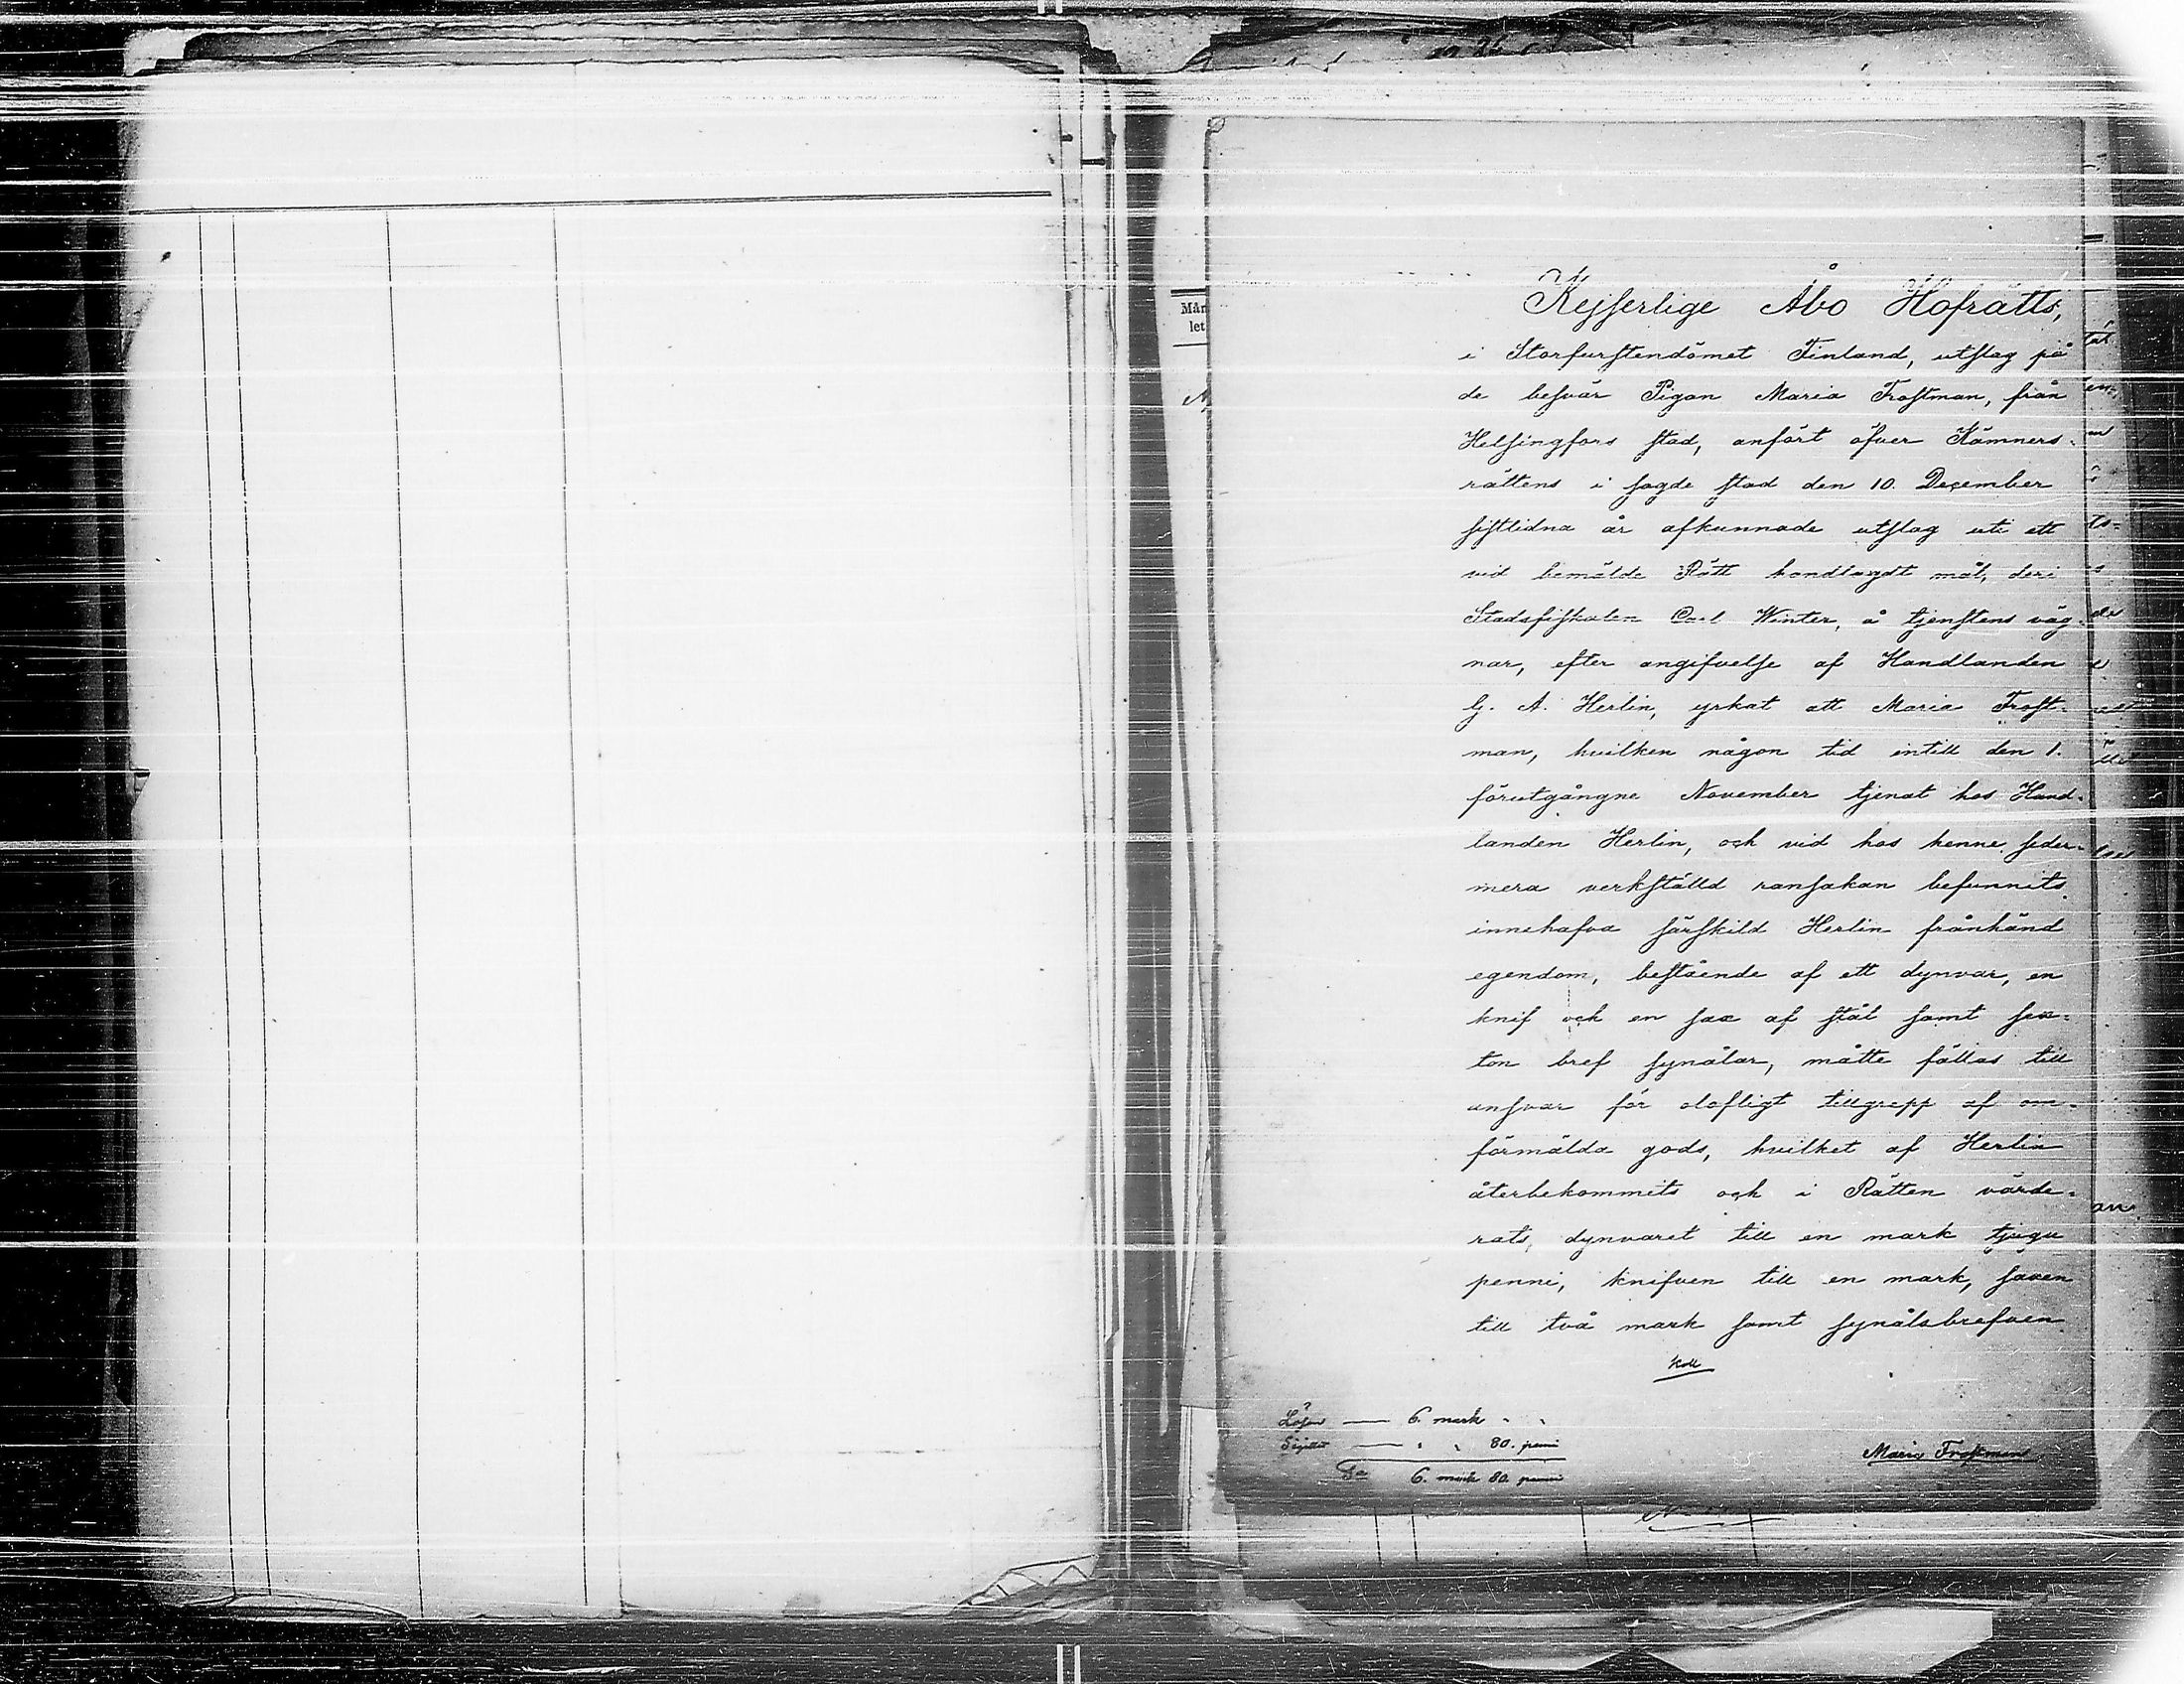 Kejserlige Åbo Hofrätts,
i Storfurstendömet Finland, utslag på
de besvär Pigan Maria Trostman, från
Helsingfors stad, anfört öfver Kämners-
rättens i sagde stad den 10. December
sistlidna år afkunnade utslag uti ett
vid bemälde Rätt handlagdt mål, deri
Stadsfiskalen Carl Winter, å tjenstens väg-
nar, efter angifvelse af Handlanden
G. A. Herlin, yrkat att Maria Trost-
man, hvilken någon tid intill den 1.
förutgångne November tjenat hos Hand-
landen Herlin, och vid hos henne seder-
mera verkställd ransakan befunnits
innehafva särskild Herlin frånhänd
egendom, bestående af ett dynvar, en
knif och en sax af stål samt sex-
ton bref synålar, måtte fällas till
ansvar för olofligt tillgrepp af om-
förmälda gods, hvilket af Herlin
återbekommits och i Rätten värde-
rats, dynvaret till en mark tjugu
penni, knifven till en mark, saxen
till två mark samt synålsbrefven
Koll
Lösen — 6. mark " "
Sigillet — " " 80. penni
S:a 6. mark 80. penni
Maria Trostman
Mån
let